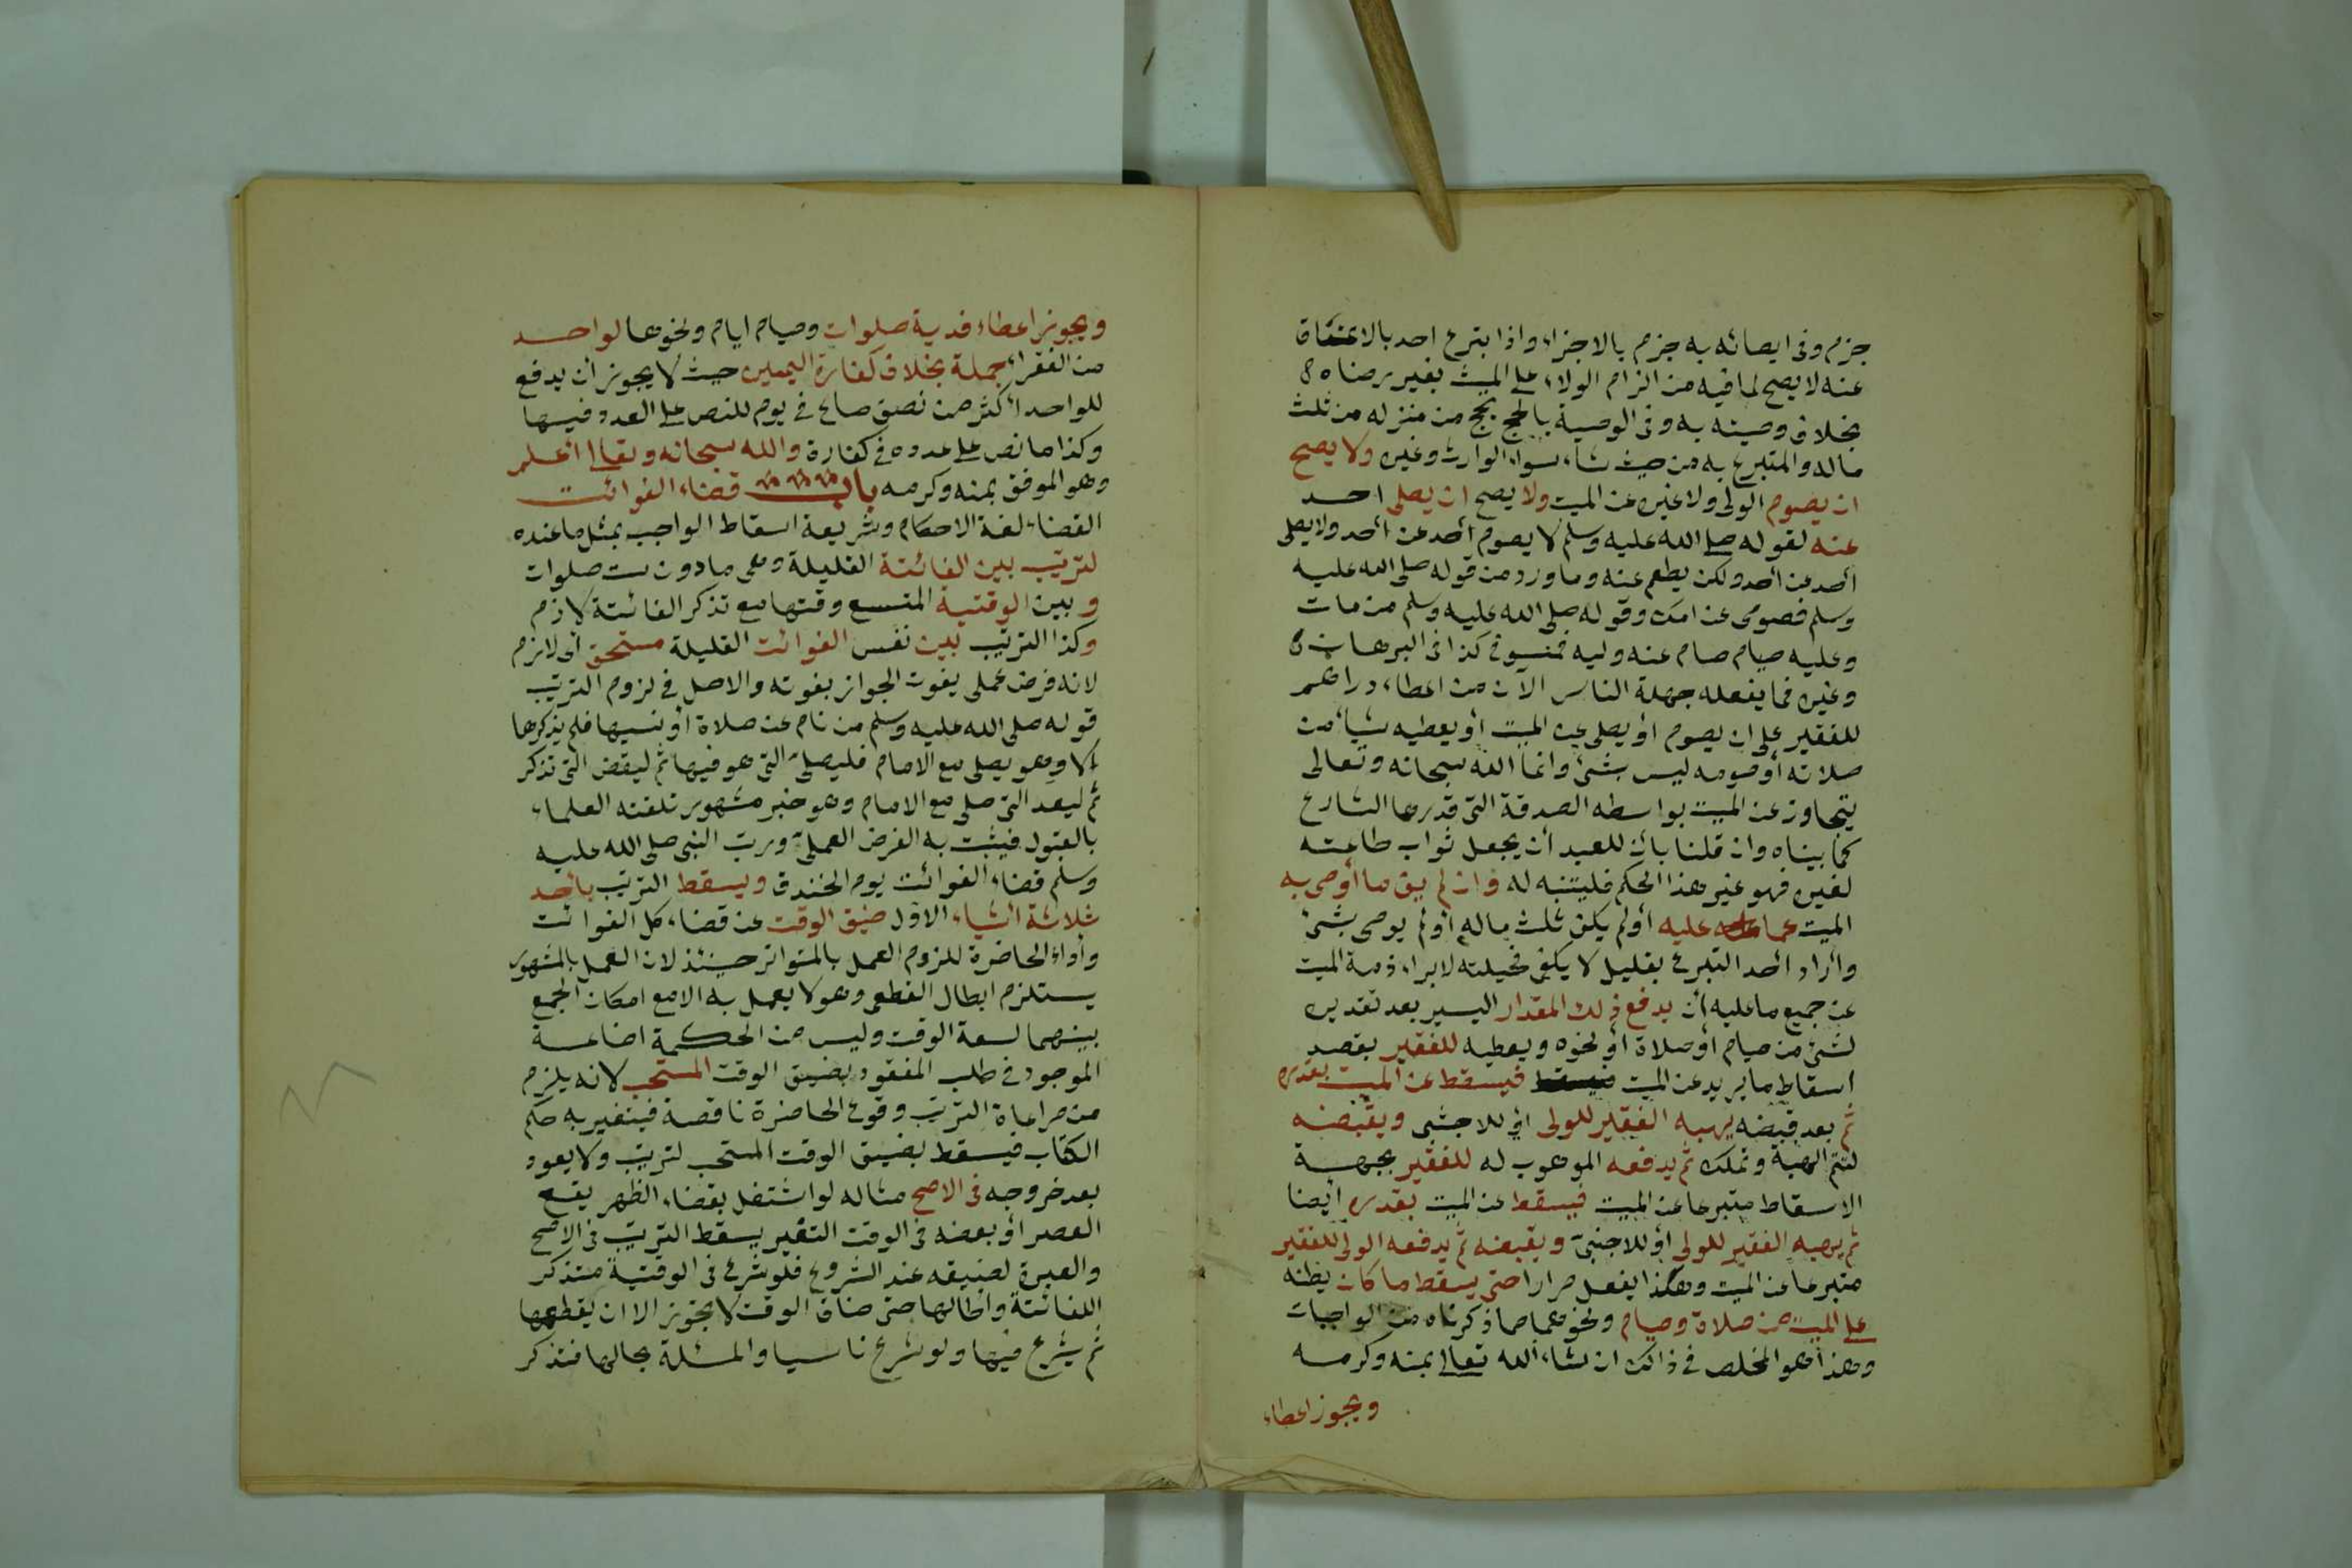 جزم وفى ايصائه به جزم بالاجزاء واذا تبرع احد بالاعتاق
عنه لا يصح لما فيه من الزام الولاء على الميت بغير رضاه
بخلاف وصيته به وفى الوصية بالحج يحج من منزله من ثلث
ماله والمتبرع به من حيث شاء سواء الوارث وغيره ولا يصح
ان يصوم الولى ولا غيره عن الميت ولا يصح ان يصلى احد
عنه لقوله صلى الله عليه وسلم لا يصوم أحد عن أحد ولا يصلى
أحد عن أحد ولكن يطعم عنه وما ورد من قوله صلى الله عليه
وسلم فصومى عن امك وقوله صلى الله عليه وسلم من مات
وعليه صيام صام عنه وليه فمنسوخ كذا فى البرهان
وغيره فما يفعله جهلة الناس الان من اعطاء دراهم
للفقير على ان يصوم أو يصلى عن الميت أو يعطيه شيأ من
صلاته أو صومه ليس بشئ وانما الله سبحانه وتعالى
يتجاوز عن الميت بواسطه الصدقة التى قدرها الشارع
كما بيناه وان قلنا بان للعبد أن يجعل ثواب طاعته
لغيره فهو غير هذا الحكم فليتنبه له وان لم يف ما أوصى به
الميت عما عليه أو لم يكف ثلث ماله أو لم يوصى بشئ
وأراد أحد التبرع بقليل لا يكفى فحيلته لابراء ذمة الميت
عن جميع ما عليه أن يدفع ذلك المقدار اليسير بعد تقديره
لشئ من صيام أو صلاة أو نحوه ويعطيه للفقير بقصد
اسقاط ما يريد عن الميت فيسقط عن الميت بقدره
ثم بعد قبضه يهبه الفقير للولى أو للاجنبى ويقبضه
لتتم الهبة وتملك ثم يدفعه الموهوب له للفقير بجهة
الاسقاط متبرعا عن الميت فيسقط عن الميت بقدره أيضا
ثم يهبه الفقير للولى أو للاجنبى ويقبضه ثم يدفعه الولى للفقير
متبرعا عن الميت وهكذا يفعل مرارا حتى يسقط ما كان يظنه
على الميت من صلاة وصيام ونحوهما مما ذكرناه من الواجبات
وهذا هو المخلص فى ذالك ان شاء الله تعالى بمنه وكرمه
ويجوز اعطاء
ويجوز اعطاء فدية صلوات وصيام ايام ونحوها لواحد
من الفقراء جملة بخلاف كفارة اليمين حيث لا يجوز أن يدفع
للواحد أكثر من نصف صاع فى يوم للنص على العدد فيها
وكذا ما نص على عدده فى كفارة والله سبحانه وتعالى أعلم
وهو الموفق بمنه وكرمه باب قضاء الفوائت
القضاء لغة الاحكام وشريعة اسقاط الواجب بمثل ما عنده
لترتيب بين الفائتة القليلة وهى ما دون ست صلوات
وبين الوقتية المتسع وقتها مع تذكر الفائتة لازم
وكذا الترتيب بين نفس الفوائت القليلة مستحق أى لازم
لانه فرض عملى يفوت الجواز بفوته والاصل فى لزوم الترتيب
قوله صلى الله عليه وسلم من نام عن صلاة أو نسيها فلم يذكرها
الا وهو يصلى مع الامام فليصلى التى هو فيها ثم ليقض التى تذكر
ثم ليعد التى صلى مع الامام وهو خبر مشهور تلقته العلماء
بالقبول فيثبت به الفرض العملى ورتب النبى صلى الله عليه
وسلم قضاء الفوائت يوم الخندق ويسقط الترتيب بأحد
ثلاثة أشياء الاول ضيق الوقت عن قضاء كل الفوائت
وأداء الحاضرة للزوم العمل بالمتواتر حينئذ لان العمل بالمشهور
يستلزم ابطال القطعى وهو لا يعمل به الا مع امكان الجمع
بينهما لسعة الوقت وليس من الحكمة اضاعة
الموجود فى طلب المفقود بضيق الوقت المستحب لانه يلزم
من مراعاة الترتيب وقوع الحاضرة ناقصة فيتغير به حكم
الكتاب فيسقط بضيق الوقت المستحب لترتيب ولا يعود
بعد خروجه فى الاصح مثاله لو اشتغل بقضاء الظهر يقع
العصر أو بعضه فى الوقت التغير يسقط الترتيب فى الاصح
والعبرة لضيقه عند الشروع فلو شرع فى الوقتية متذكر
اللفائتة وأطالها حتى ضاق الوقت لا يجوز الا ان يقطعها
ثم يشرع فيها ولو شرع ناسيا والمسئلة بحالها فتذكر